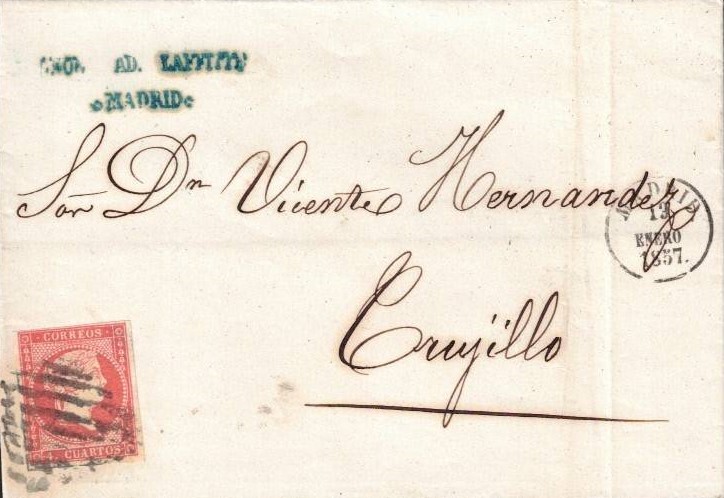 AD. LAFFITTE
MADRID
Sor. Dn Vicente Hernandez
MADRID
13
ENERO
1857.
Trujillo
CORREOS
4 CUARTOS